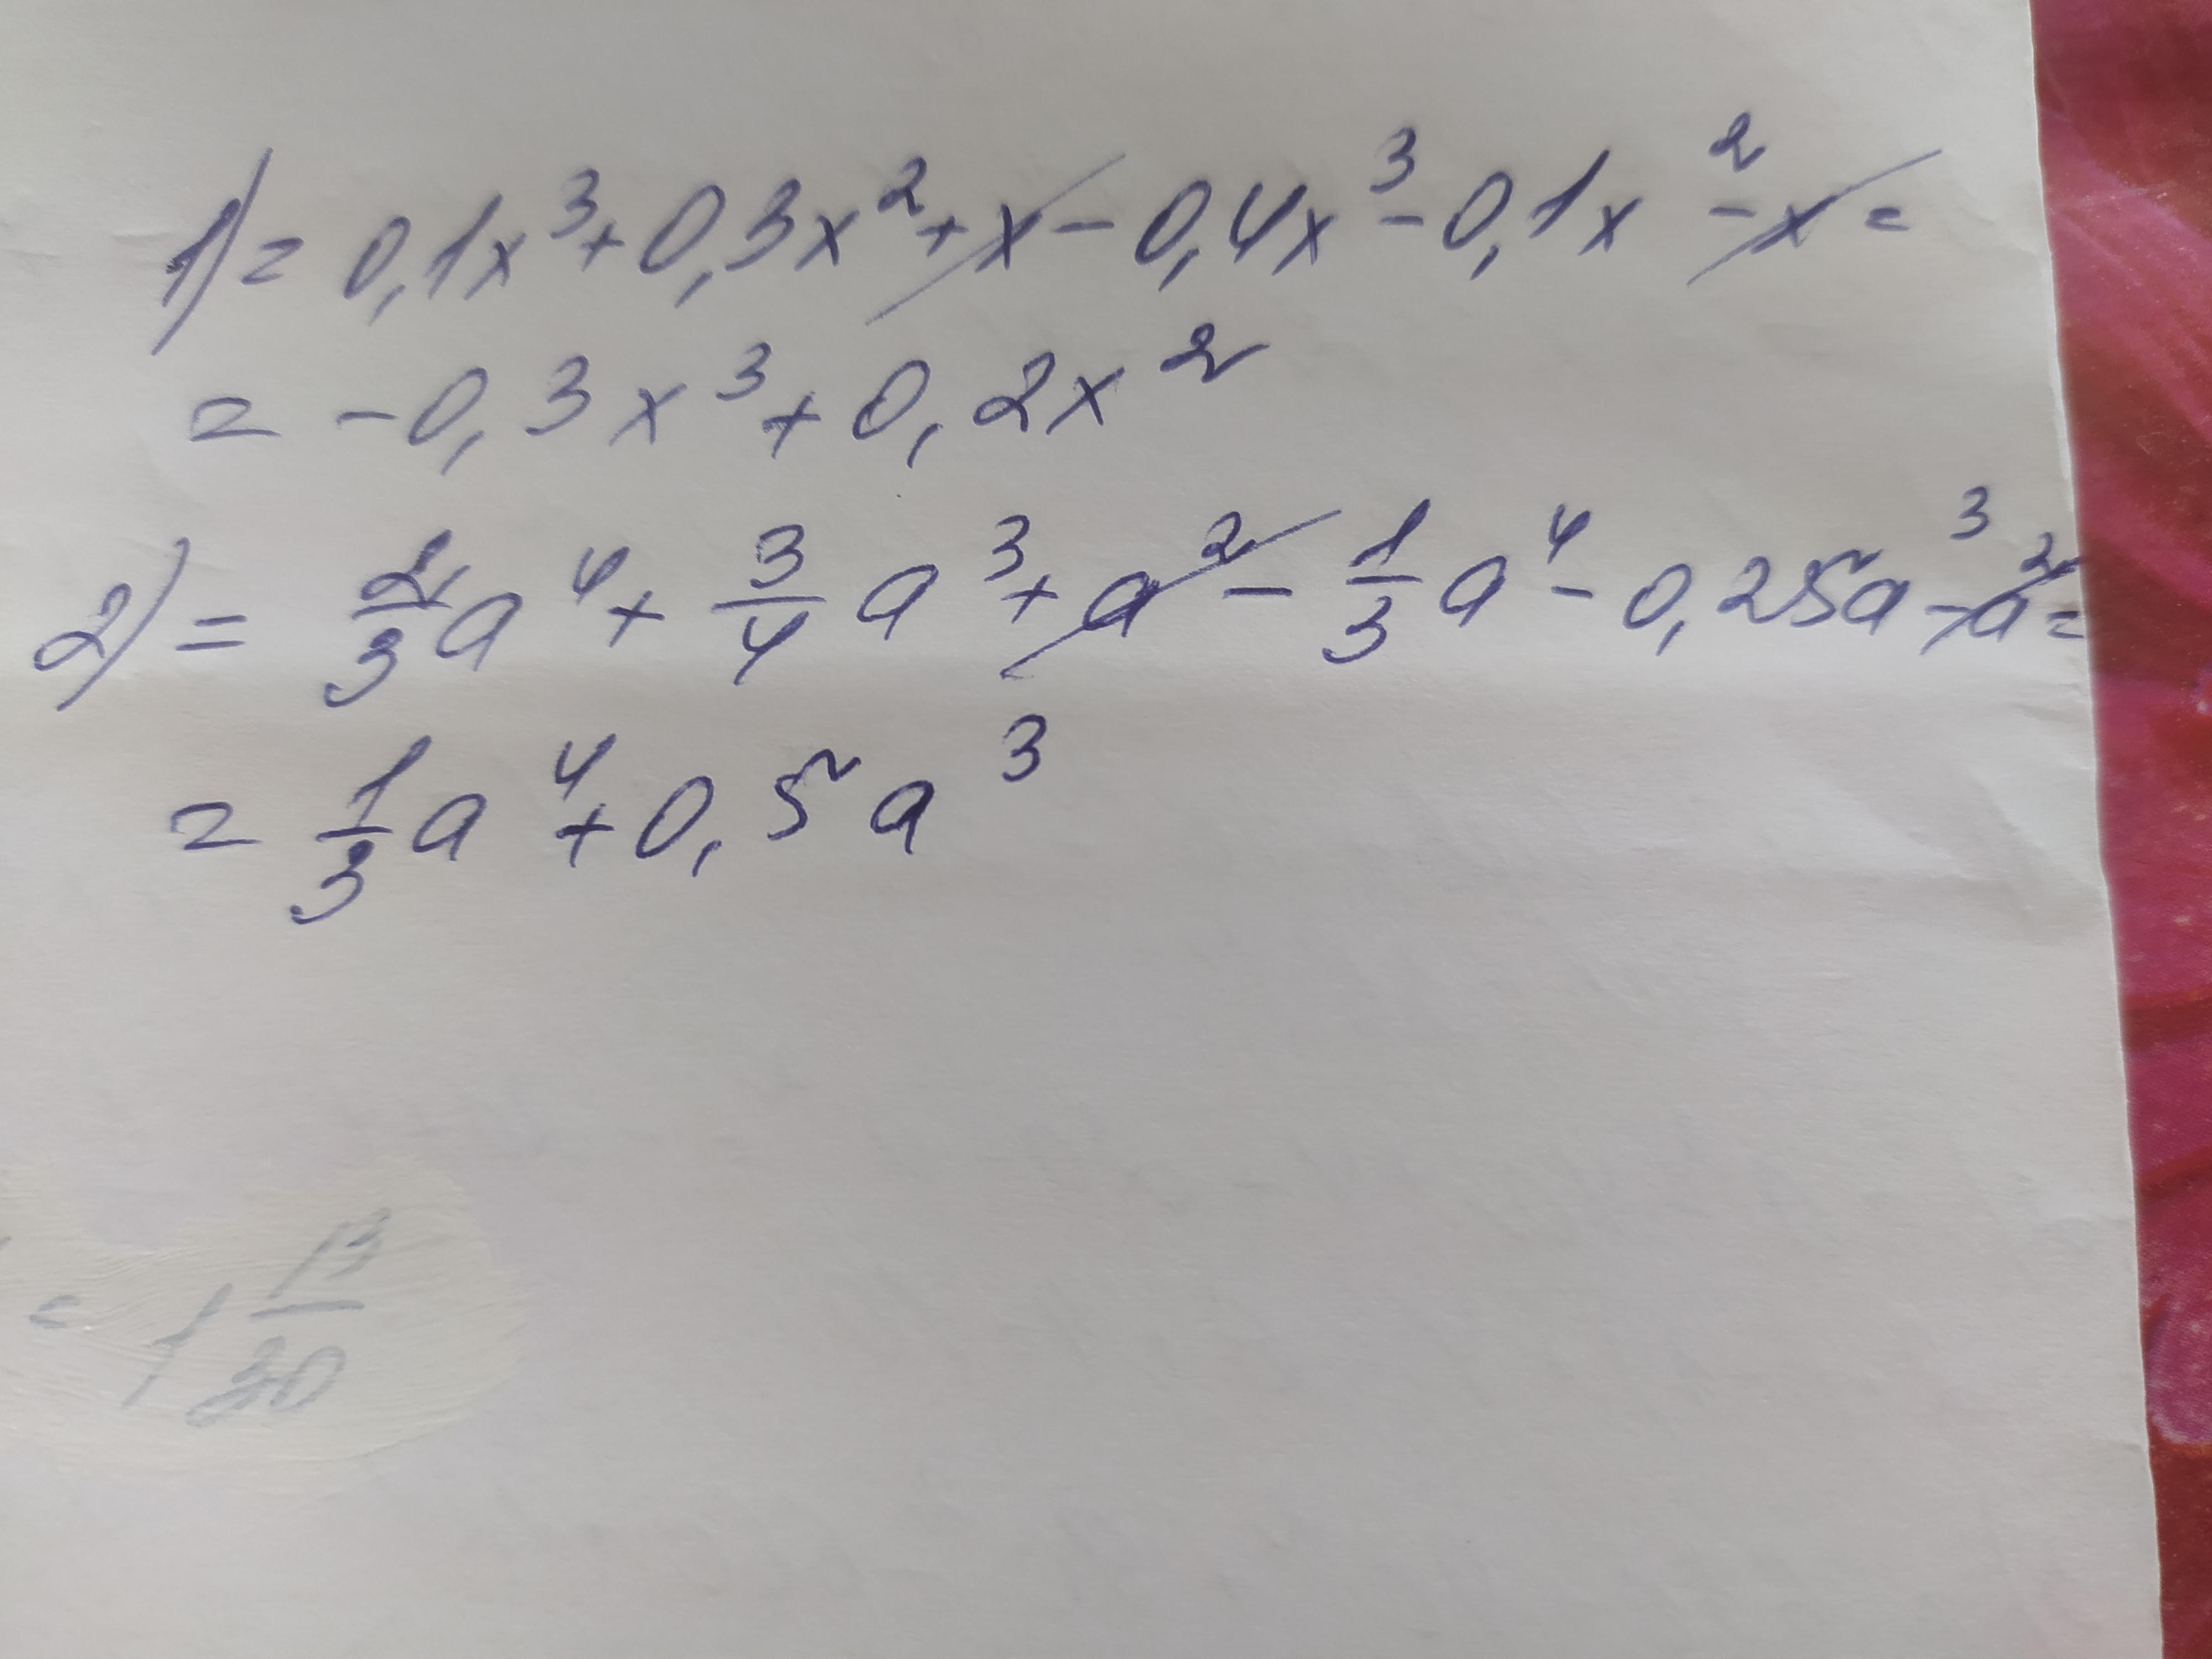 1) = 0,1x³ + 0,3x² + x - 0,4x³ - 0,1x² - x =
= -0,3x³ + 0,2x²
2) = 2/3 a⁴ + 3/4 a³ + a² - 1/3 a⁴ - 0,25a³ - a² =
= 1/3 a⁴ + 0,5a³
= 1 13/30